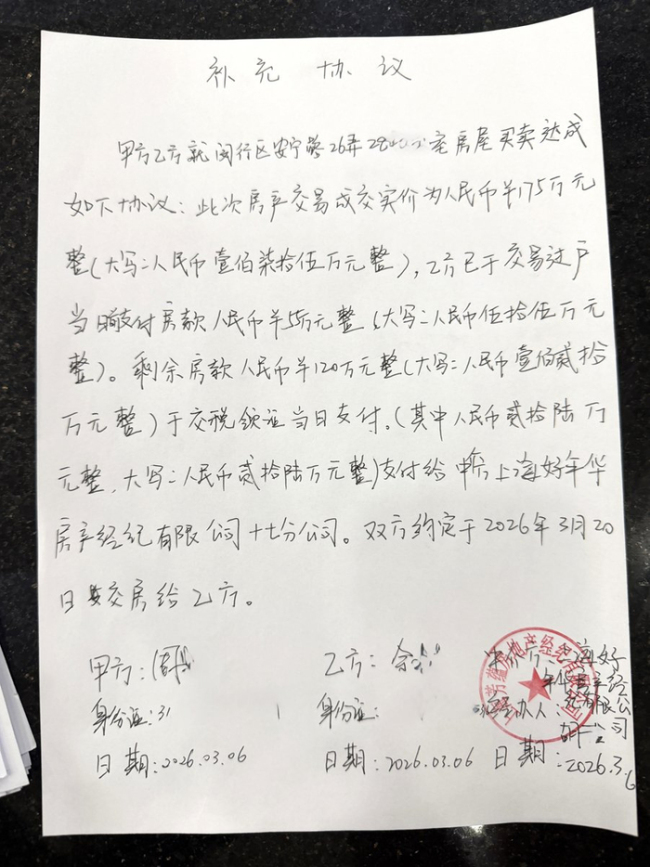 补充协议
甲方乙方就闵行区安宁路26弄28 室房屋买卖达成
如下协议：此次房产交易成交实价为人民币¥175万元
整（大写：人民币壹佰柒拾伍万元整），乙方已于交易过户
当日支付房款人民币¥55万元整（大写：人民币伍拾伍万元
整）。剩余房款人民币¥120万元整（大写：人民币壹佰贰拾
万元整）于交税领证当日支付。（其中人民币贰拾陆万
元整，大写：人民币贰拾陆万元整）支付给中介上海好年华
房产经纪有限公司十七分公司。双方约定于2026年3月20
日 交房给乙方。
甲方：周
乙方：余
身份证：31
身份证：
经办人：
日期：2026.03.06
日期：2026.03.06
日期：2026.3.6
地产经纪有